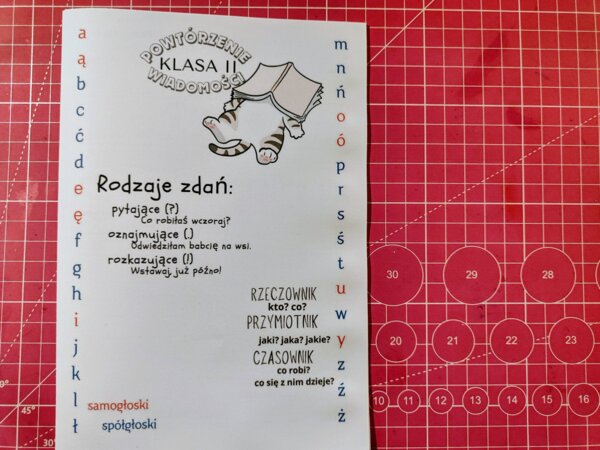 a
ą
b
c
ć
d
e
ę
f
g
h
i
j
k
l
ł
POWTÓRZENIE
KLASA II
WIADOMOŚCI
Rodzaje zdań:
pytające (?)
Co robiłaś wczoraj?
oznajmujące (.)
Odwiedziłam babcię na wsi.
rozkazujące (!)
Wstawaj, już późno!
RZECZOWNIK
kto? co?
PRZYMIOTNIK
jaki? jaka? jakie?
CZASOWNIK
co robi?
co się z nim dzieje?
samogłoski
spółgłoski
m
n
ń
o
ó
p
r
s
ś
t
u
w
y
z
ź
ż
30 29 28
20 21 22 23
10 11 12 13 14 15 16
0°
45°
30°